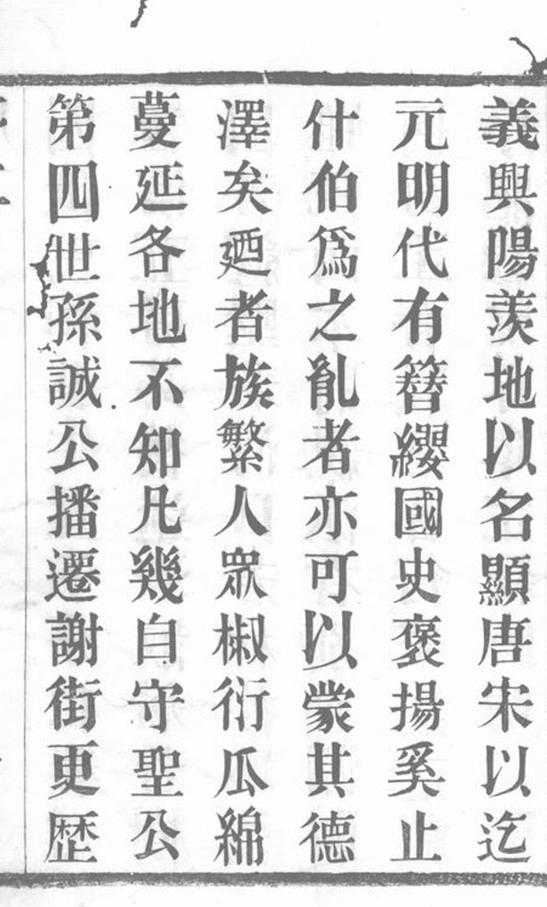 義興陽羨地以名顯唐宋以迄
元明代有簪纓國史褒揚奚止
什伯爲之胤者亦可以蒙其德
澤矣廼者族繁人眾椒衍瓜綿
蔓延各地不知凡幾自守聖公
第四世孫誠公播遷謝街更歴